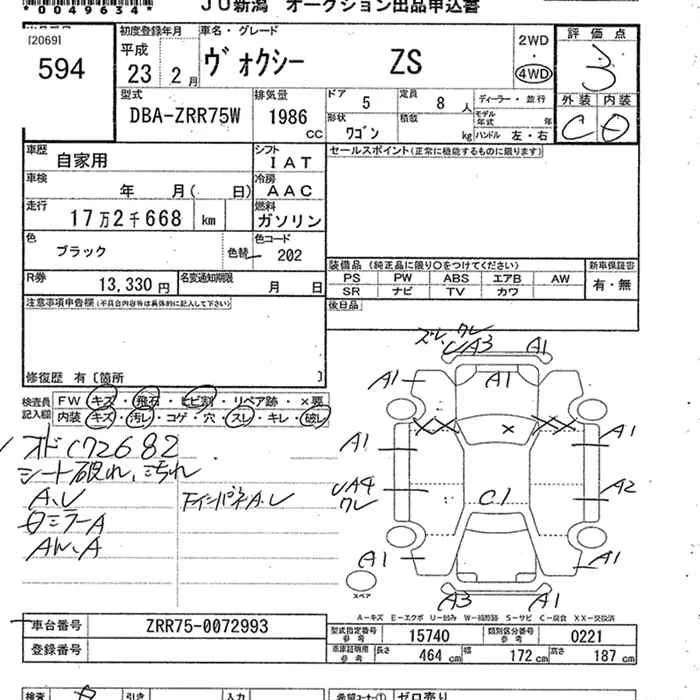 *0049634*
JU新潟 オークション出品申込書
[2069]
594
初度登録年月
平成
23 年 2 月
車名・グレード
ヴォクシー ZS
2WD
・
4WD
評価点
3
外装 内装
C D
型式
DBA-ZRR75W
排気量
1986
CC
ドア 5
定員 8 人
形状 ワゴン
積載 kg
ディーラー・並行
モデル年式 年
ハンドル 左・右
車歴
自家用
シフト
IAT
セールスポイント(正常に機能するものに限ります)
車検
年 月( 日)
冷房
AAC
走行
17万2千668 km
燃料
ガソリン
色
ブラック
色替
色コード
202
装備品 (純正品に限り○をつけてください)
PS PW ABS エアB AW
SR ナビ TV カワ
新車保証書
有・無
R券
13,330 円
名変通知期限
月 日
後日品
注意事項申告欄(不具合内容等は具体的に記入して下さい)
修復歴 有 [箇所 ]
検査員
記入欄
FW キズ・飛石・ヒビ割・リペア跡・×要
内装 キズ・汚レ・コゲ・穴・スレ・キレ・破レ
シート破れ、汚れ
A、U
ミラーA
A1 A1 A1
UA3 A1
A1 A1
UA4 A2
C1
A1 A1
A3 A1
スペア
A-キズ E-エクボ U-凹み W-補修跡 S-サビ C-腐食 XX-交換済
車台番号
ZRR75-0072993
登録番号
型式指定番号
参考
15740
類別区分番号
参考
0221
車庫証明用
参考
長さ 464 cm
幅 172 cm
高さ 187 cm
検査
引き
入力
希望コーナー① ゼロ売り